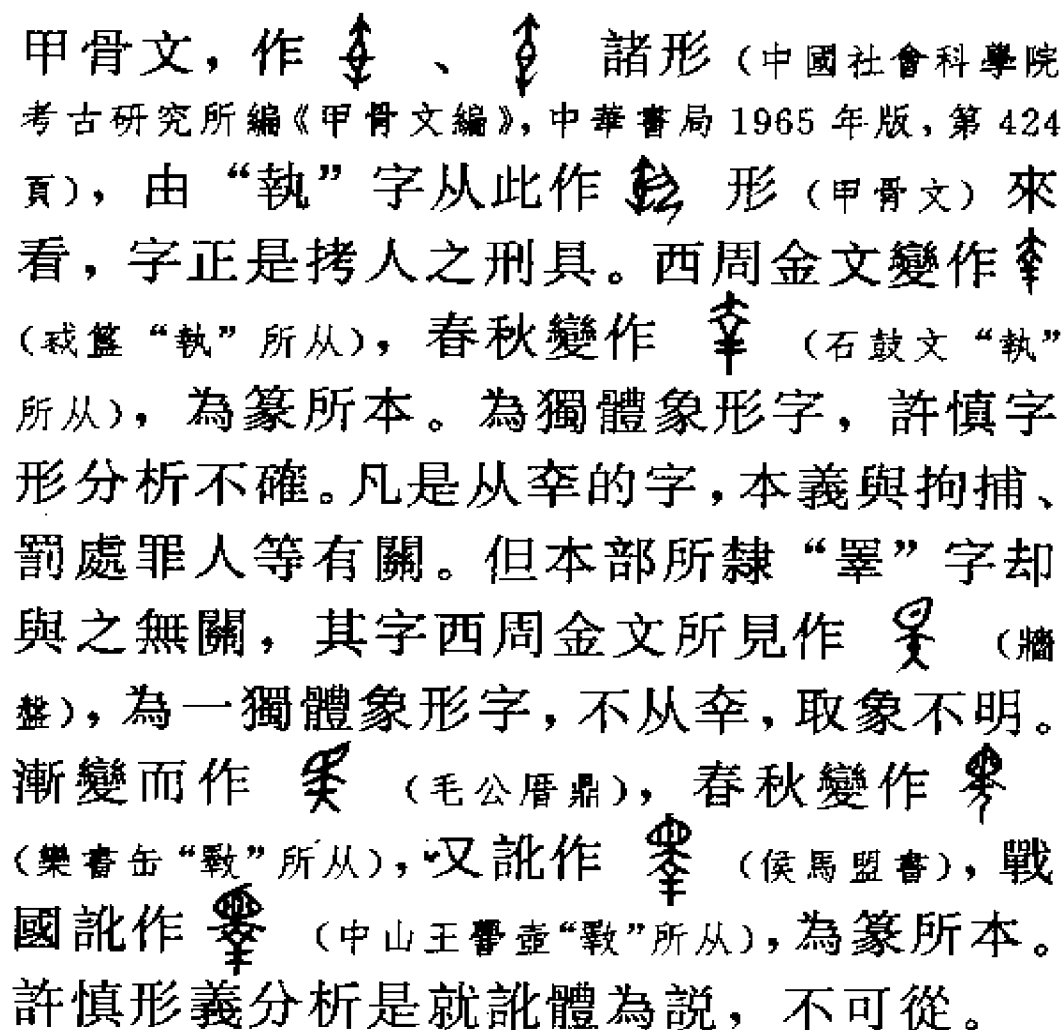 甲骨文，作 、 諸形（中國社會科學院
考古研究所編《甲骨文編》，中華書局 1965 年版，第 424
頁），由“執”字从此作 形（甲骨文）來
看，字正是拷人之刑具。西周金文變作
（㺇簋“執”所从），春秋變作 （石鼓文“執”
所从），為篆所本。為獨體象形字，許慎字
形分析不確。凡是从㚔的字，本義與拘捕、
罰處罪人等有關。但本部所隸“睪”字却
與之無關，其字西周金文所見作 （牆
盤），為一獨體象形字，不从㚔，取象不明。
漸變而作 （毛公厝鼎），春秋變作
（欒書缶“斁”所从），又訛作 （侯馬盟書），戰
國訛作 （中山王壺“斁”所从），為篆所本。
許慎形義分析是就訛體為説，不可從。